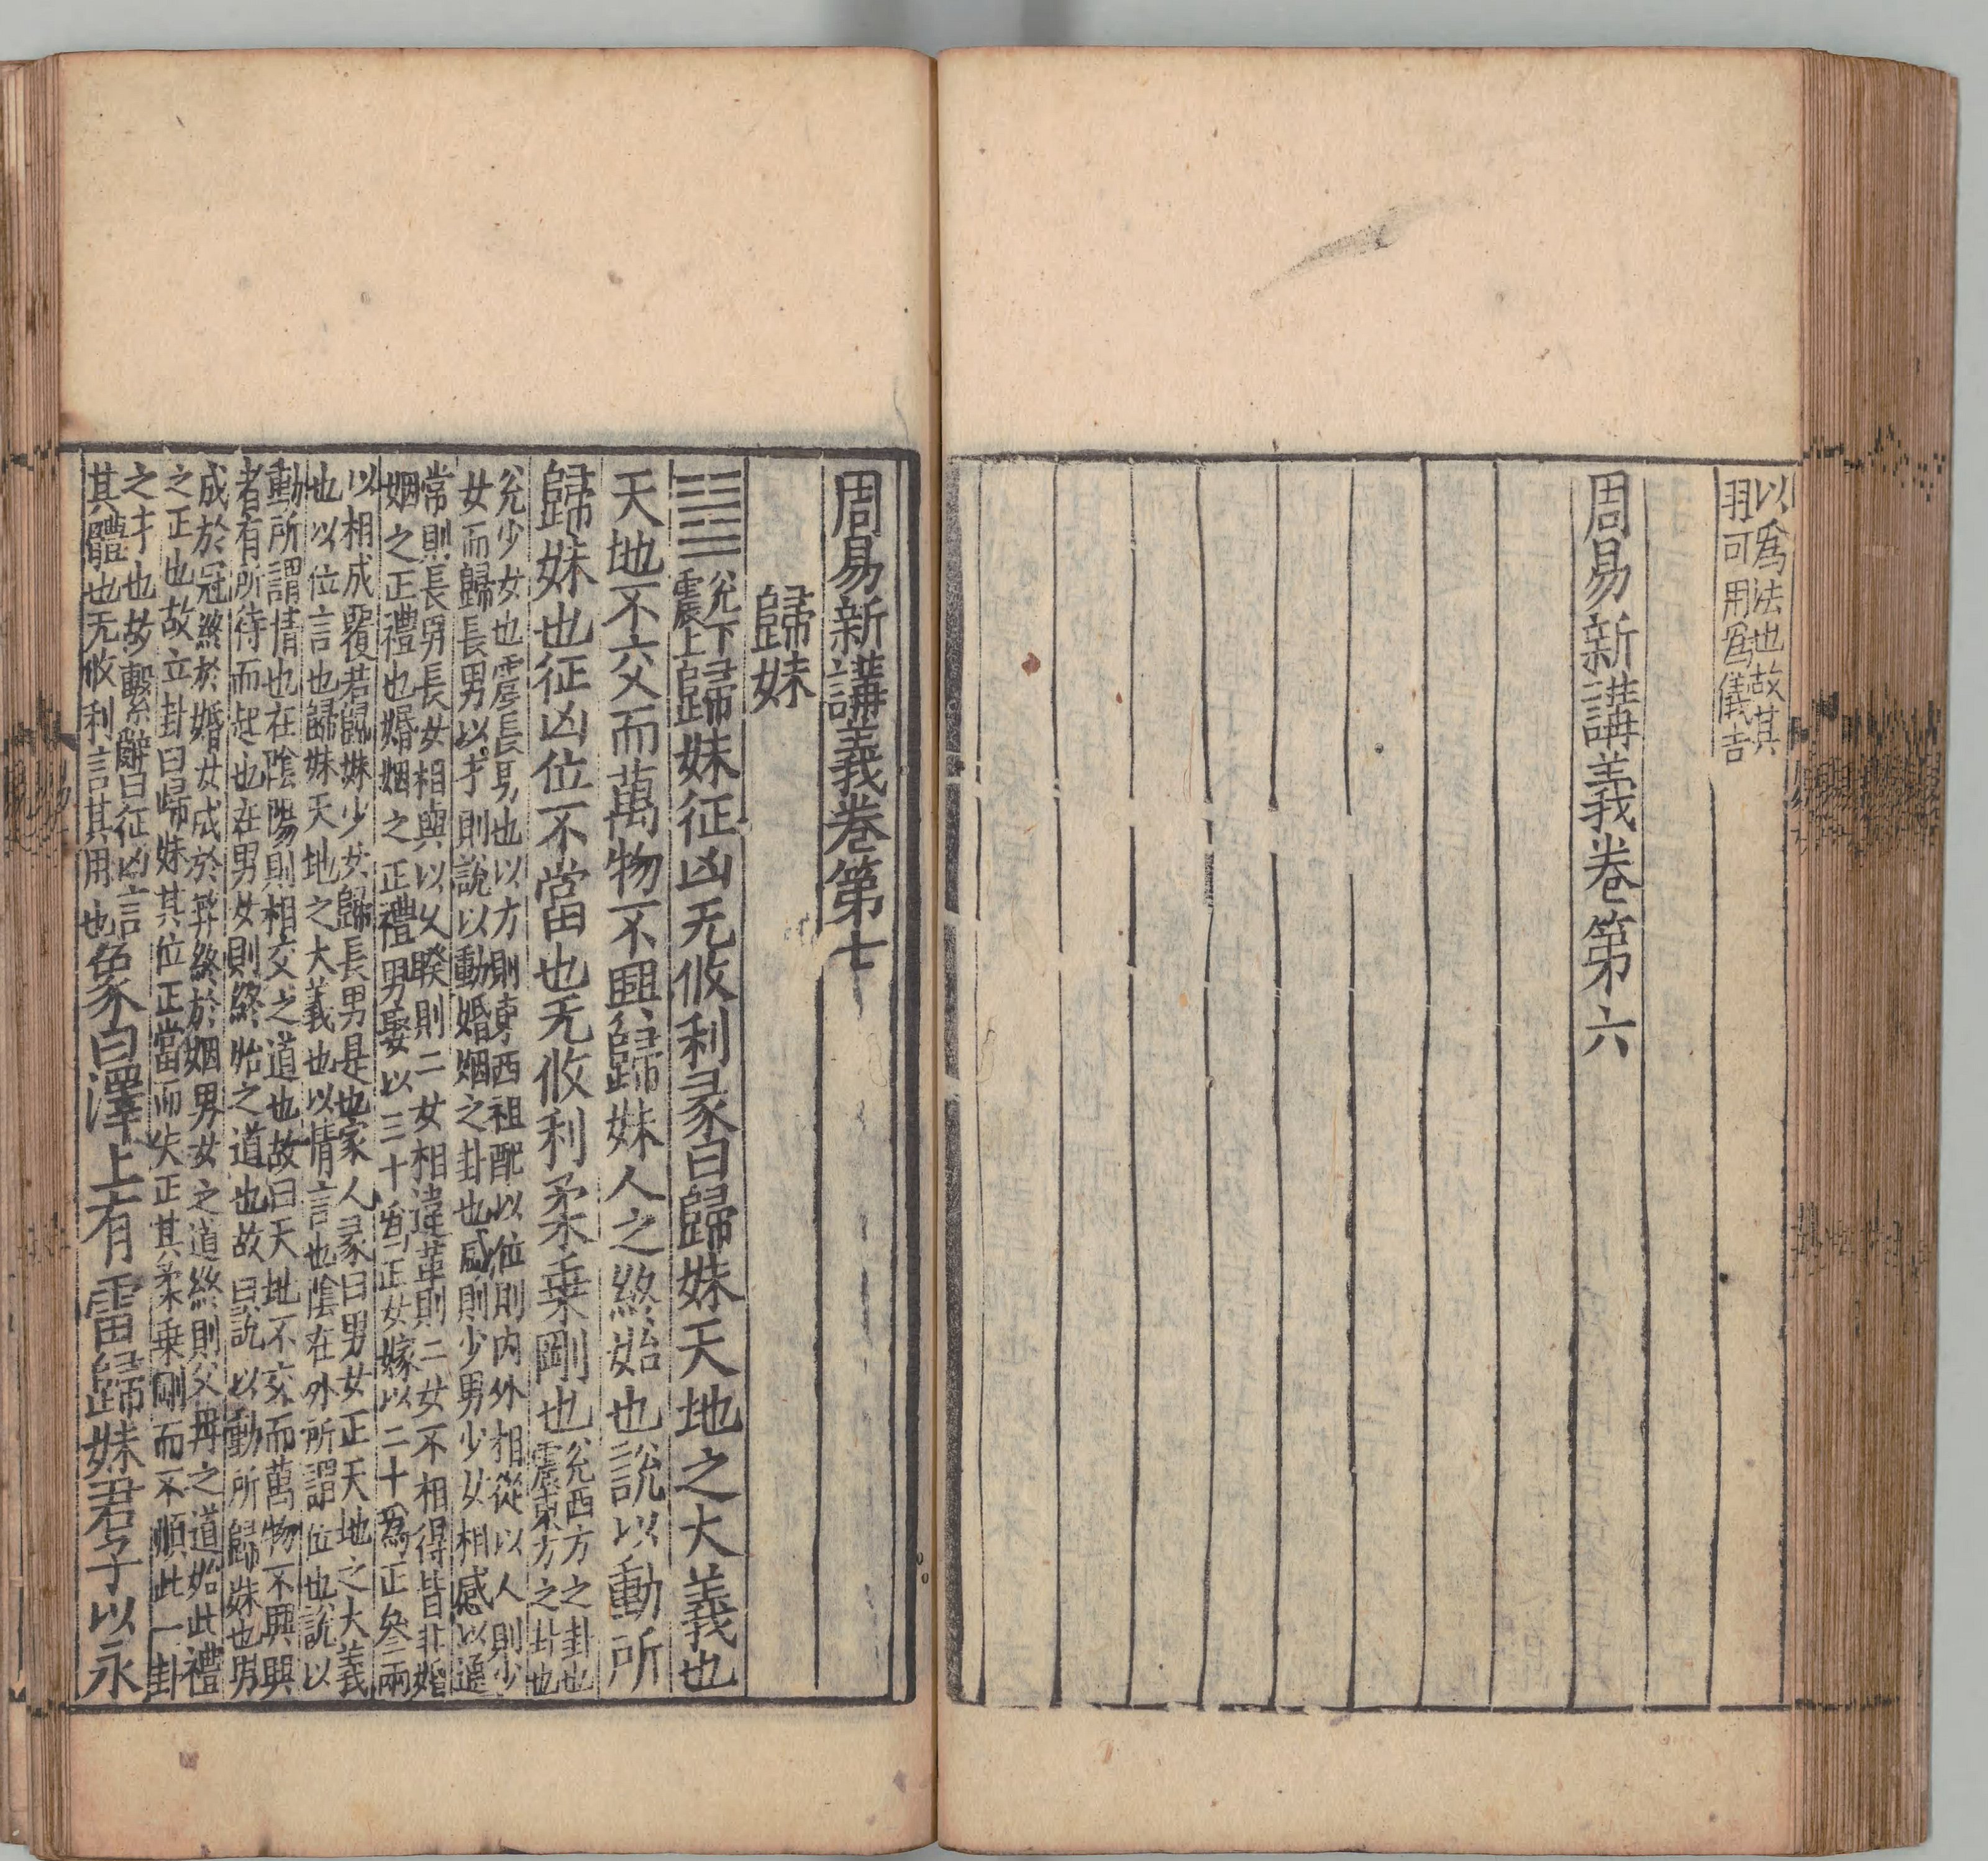 以爲法也故其
羽可用爲儀吉
周易新講義卷第六
周易新講義卷第七
歸妹
兊下
震上
歸妹征凶无攸利彖曰歸妹天地之大義也
天地不交而萬物不興歸妹人之終始也說以動所
歸妹也征凶位不當也无攸利柔乗剛也
兊西方之卦也
震東方之卦也
兊少女也震長男也以方則東西相配以位則内外相從以人則少
女而歸長男以才則說以動婚姻之卦也咸則少男少女相感以通
常則長男長女相與以乆睽則二女相違革則二女不相得皆非婚
姻之正禮也婚姻之正禮男娶以三十爲正女嫁以二十爲正叅兩
以相成覆若歸妹少女歸長男是也家人彖曰男女正天地之大義
也以位言也歸妹天地之大義也以情言也陰在外所謂位也說以
動所謂情也在陰陽則相交之道也故曰天地不交而萬物不興興
者有所待而起也在男女則終始之道也故曰說以動所歸妹也男
成於冠終於婚女成於筓終於姻男女之道終則父母之道始此禮
之正也故立卦曰歸妹其位正當而失正其柔乗剛而不順此一卦
之才也故繫辭曰征凶言
其體也无攸利言其用也
象曰澤上有雷歸妹君子以永